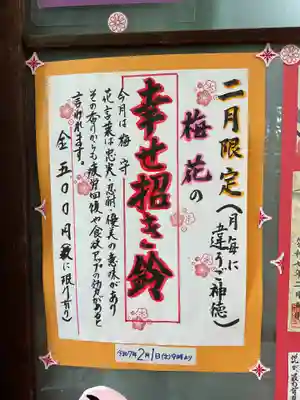 二月限定(月毎に違うご神徳)
梅花の
幸せ招き鈴
今月は梅守
花言葉は忠実・忍耐・優美の意味があり
その香りからも疲労回復や食欲アップの効力があると
言われます。
金五〇〇円(数に限り有り)
令和7年2月1日(土)9時より